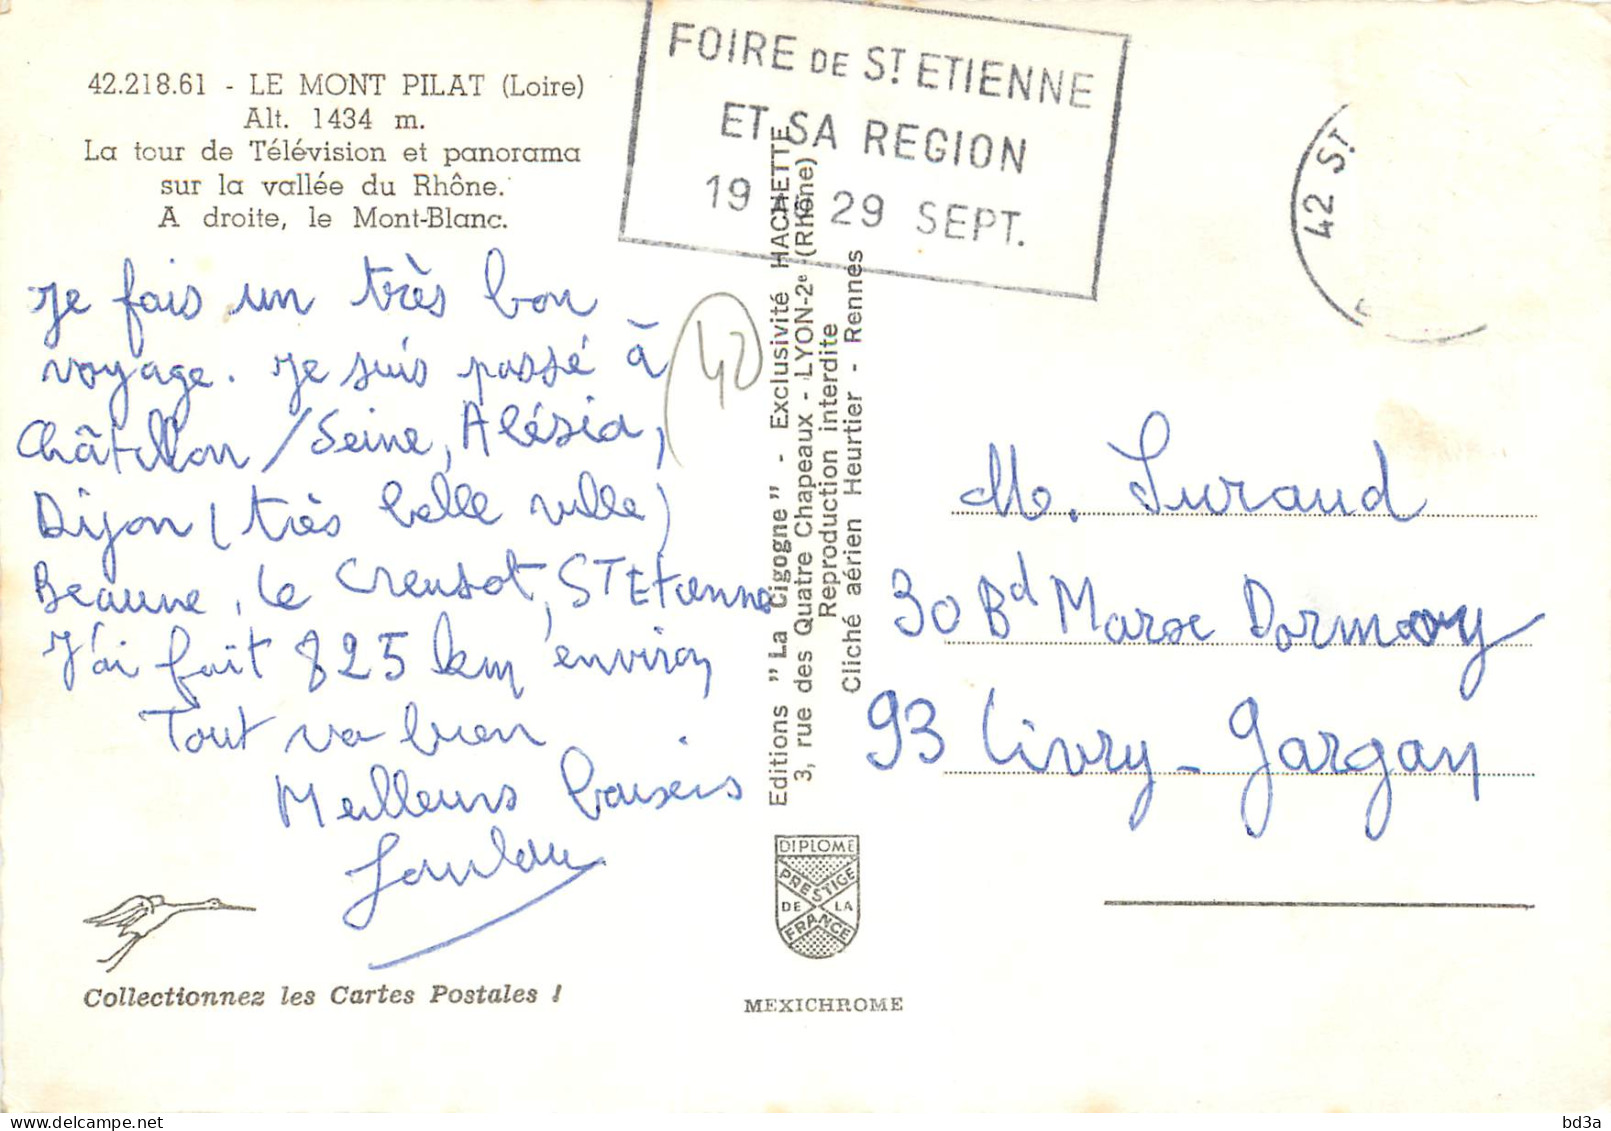 42.218.61 - LE MONT PILAT (Loire)
Alt. 1434 m.
La tour de Télévision et panorama
sur la vallée du Rhône.
A droite, le Mont-Blanc.
Je fais un très bon
voyage. Je suis passé à
Châtillon/Seine, Alésia,
Dijon (très belle ville)
Beaune, le Creusot, ST Etienne
J'ai fait 825 km environ
Tout va bien
Meilleurs baisers
Collectionnez les Cartes Postales !
FOIRE DE ST ETIENNE
ET SA REGION
19 29 SEPT.
42 ST
40
Editions "La Cigogne" - Exclusivité HACHETTE
3, rue des Quatre Chapeaux - LYON-2e (Rhône)
Reproduction interdite
Cliché aérien Heurtier - Rennes
DIPLOME
PRESTIGE
DE LA
FRANCE
MEXICHROME
M. Suraud
30 Bd Marx Dormoy
93 Livry-Gargan
bd3a